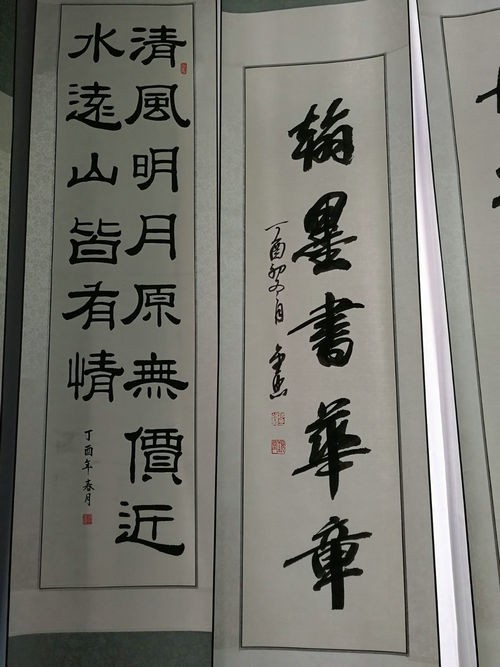 清風明月原無價近
水遠山皆有情
丁酉年春月
翰墨書華章
丁酉初冬月